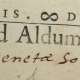 IS. D
d Aldum
enetæ So